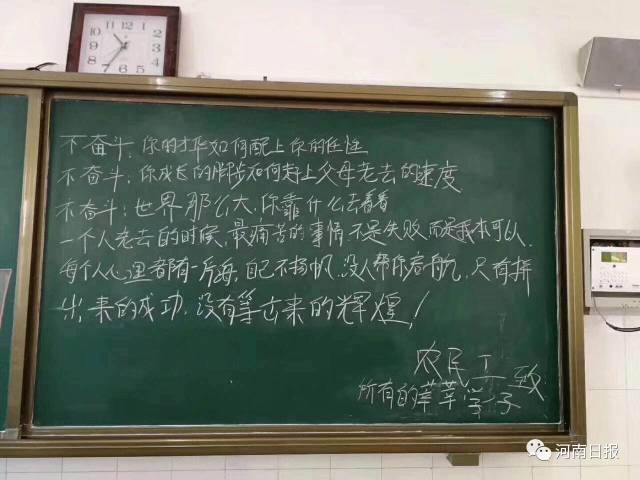 不奋斗，你的才华如何配上你的任性
不奋斗；你成长的脚步如何赶上父母老去的速度
不奋斗；世界那么大，你靠什么去看看
一个人老去的时候，最痛苦的事情，不是失败，而是我本可以，
每个人心里都有一片海，自己不扬帆，没人帮你启航，只有拼
出来的成功，没有等出来的辉煌！
农民工致
所有的莘莘学子
河南日报